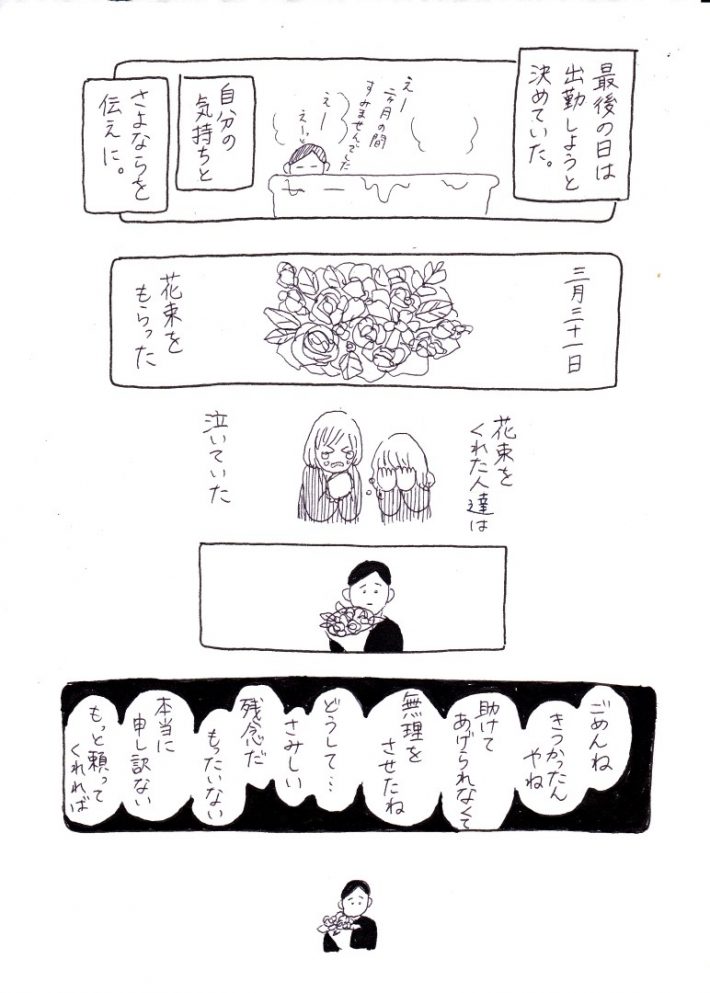 最後の日は
出勤しようと
決めていた。
えー
一ヶ月の間
すみませんでした
えー
えーっと
自分の
気持ちと
さよならを
伝えに。
三月三十一日
花束を
もらった
花束を
くれた人達は
泣いていた
ごめんね
きつかったん
やね
助けて
あげられなくて
無理を
させたね
どうして…
さみしい
残念だ
もったいない
本当に
申し訳ない
もっと頼って
くれれば